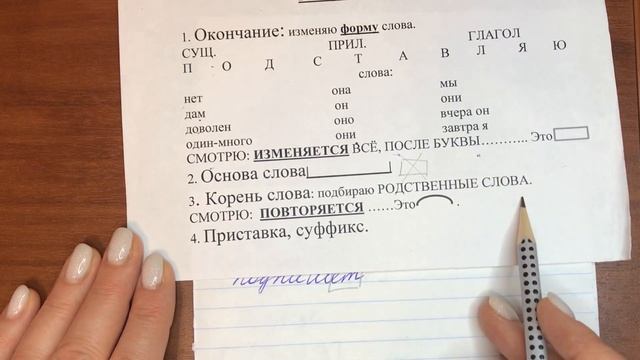 1. Окончание: изменяю форму слова.
СУЩ. ПРИЛ. ГЛАГОЛ
П О Д С Т А В Л Я Ю
слова:
нет она мы
дам он они
доволен оно вчера он
один-много они завтра я
СМОТРЮ: ИЗМЕНЯЕТСЯ ВСЁ, ПОСЛЕ БУКВЫ……….. Это
2. Основа слова
3. Корень слова: подбираю РОДСТВЕННЫЕ СЛОВА.
СМОТРЮ: ПОВТОРЯЕТСЯ ……Это .
4. Приставка, суффикс.